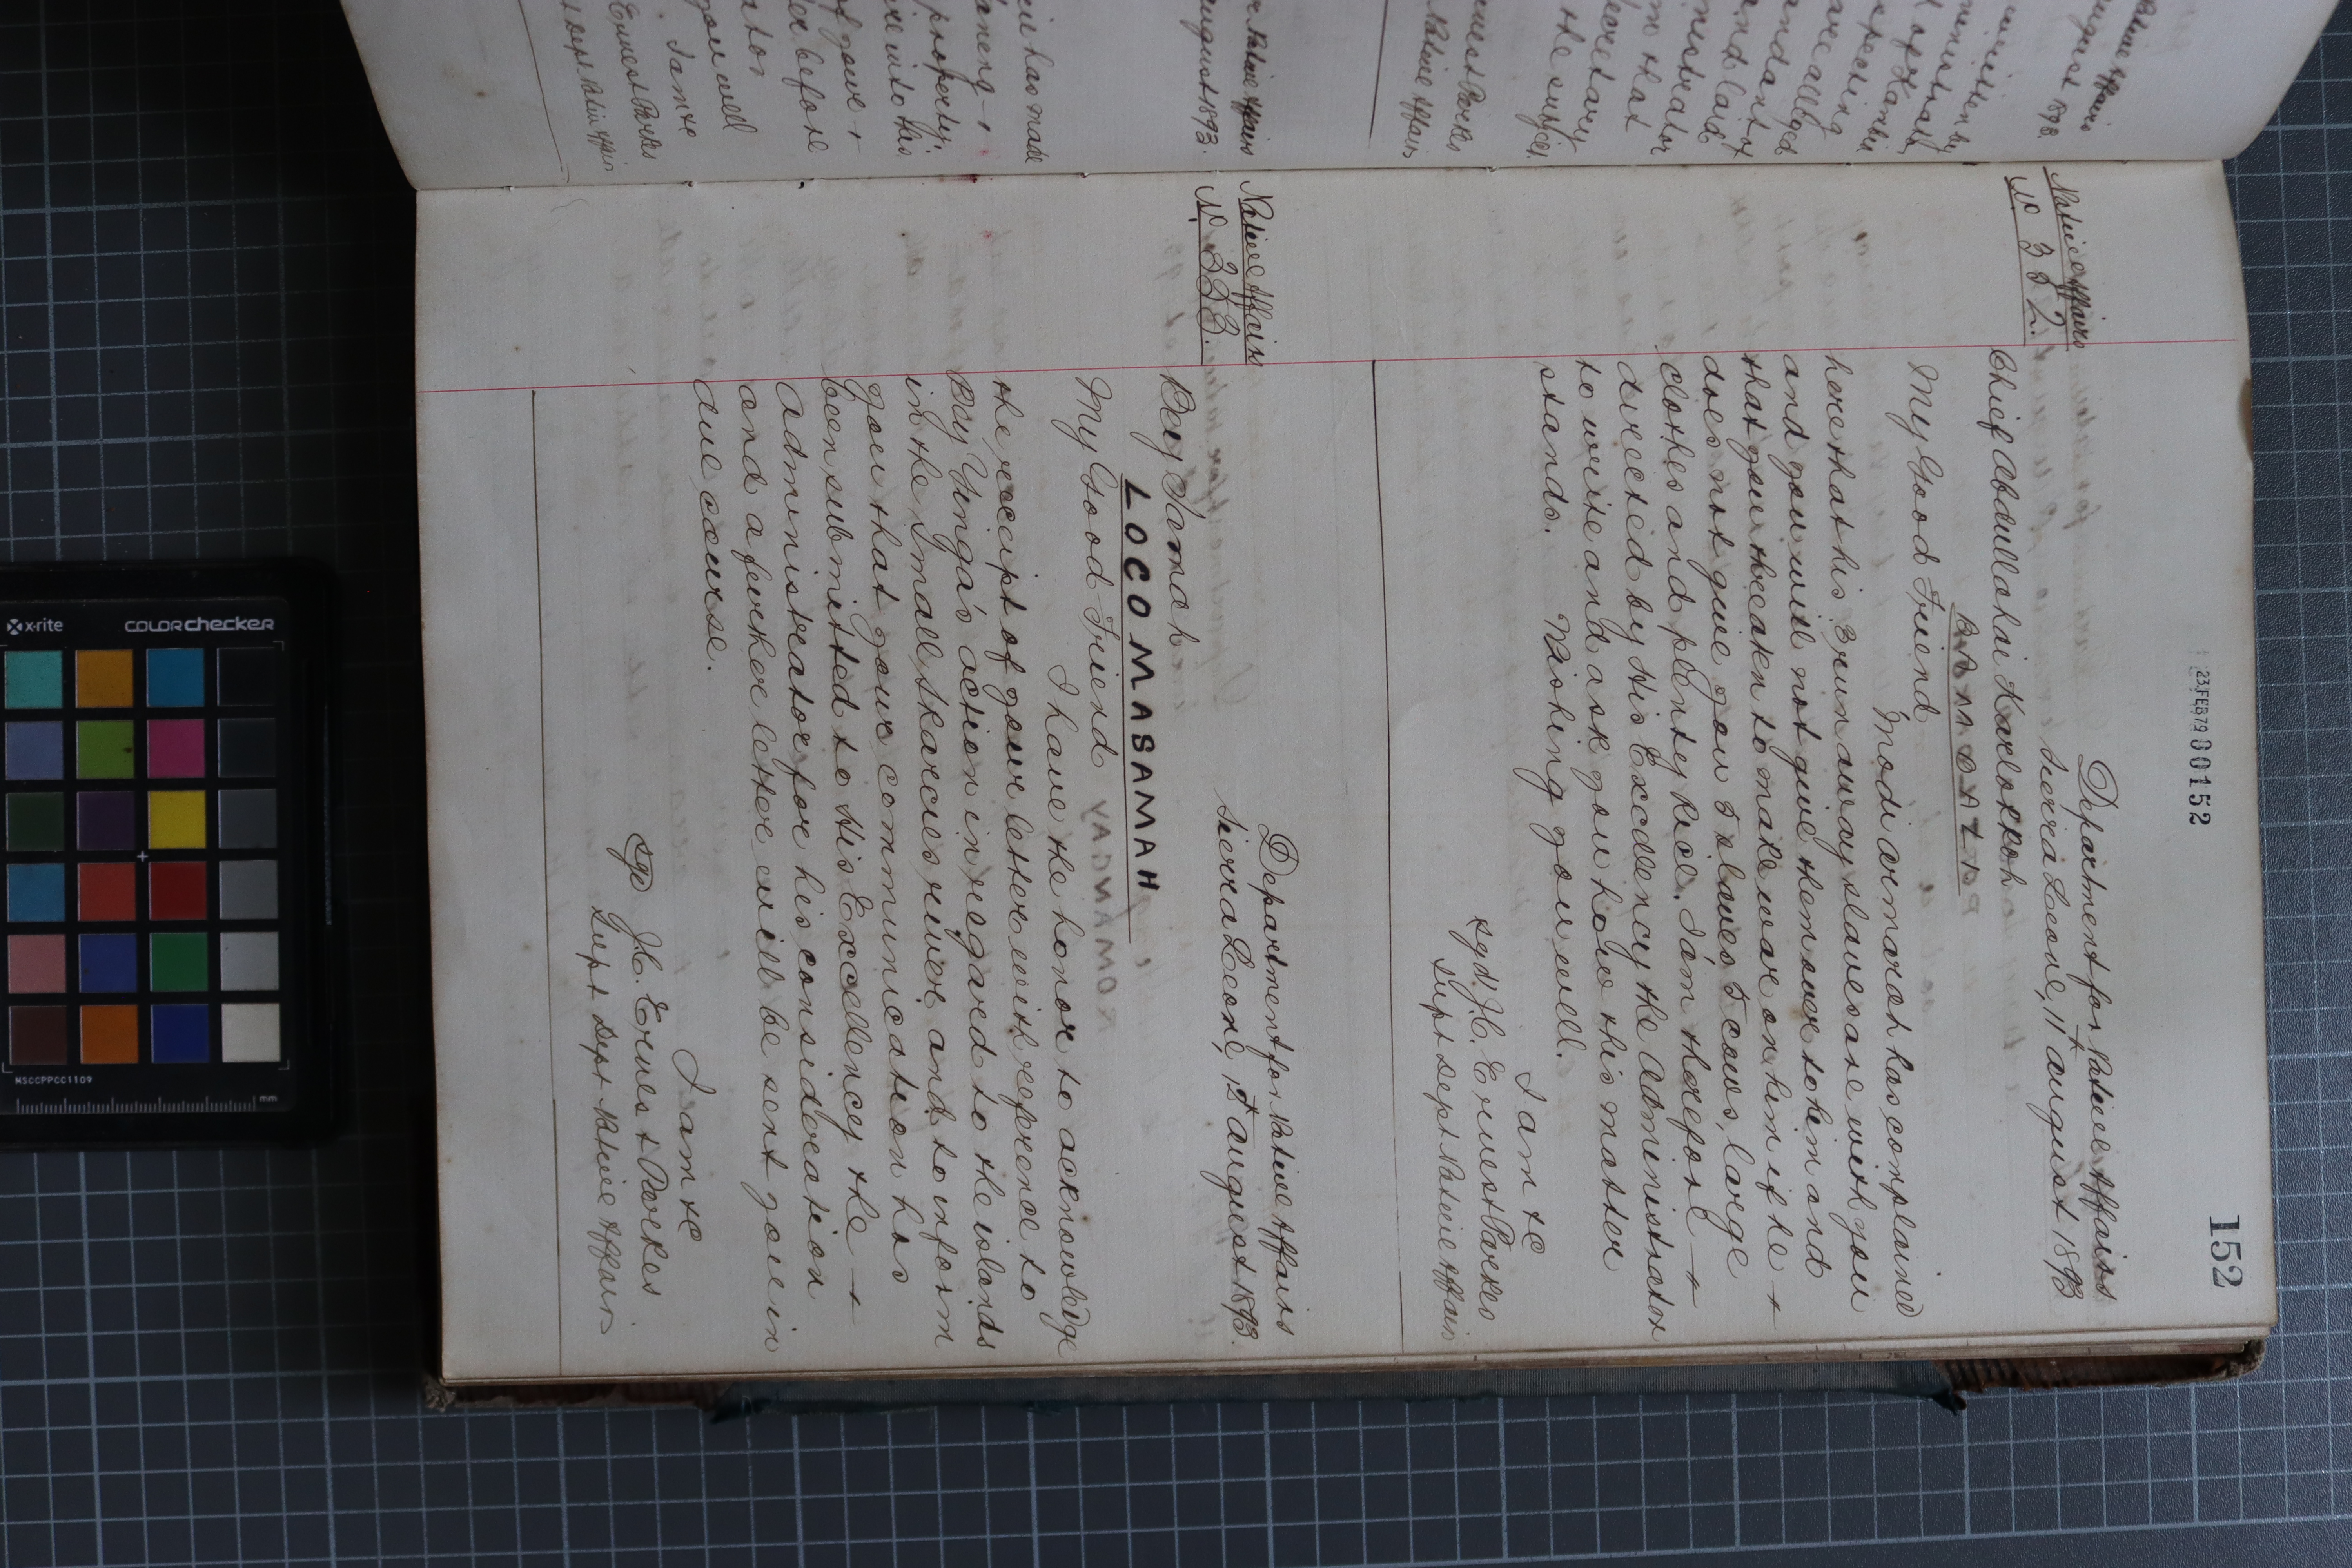 23 FEB 79 000152
152
Native Affairs
No 332.
Department for Native Affairs
Sierra Leone, 11th August 1893
Chief Abdullahai
My Good Friend
Modi Amarah has complained
here that his 3 run away slaves are with you
and you will not give them over to him and
that you threaten to make war on him if he +
does not give you 5 slaves, 5 cows, large
clothes and plenty rice. I am therefore +
directed by His Excellency the Administrator
to write and ask you how this matter
stands. Wishing you well.
I am &c
sgd J.C. Ernest Parkes
Supt Dept Native Affairs
Native Affairs
No 333.
Department for Native Affairs
Sierra Leone, 12th August 1893.
Bey Samah
LOCOMASAMAH
My Good Friend
I have the honor to acknowledge
the receipt of your letter with reference to
Bey Yinga's action in regard to the islands
in the Small Skarcies river and to inform
you that your communication has
been submitted to His Excellency the +
Administrator for his consideration
and a further letter will be sent you in
due course.
I am &c
sgd J.C. Ernest Parkes
Supt Dept Native Affairs
x-rite
colorchecker
MSCCPPCC1109
mm